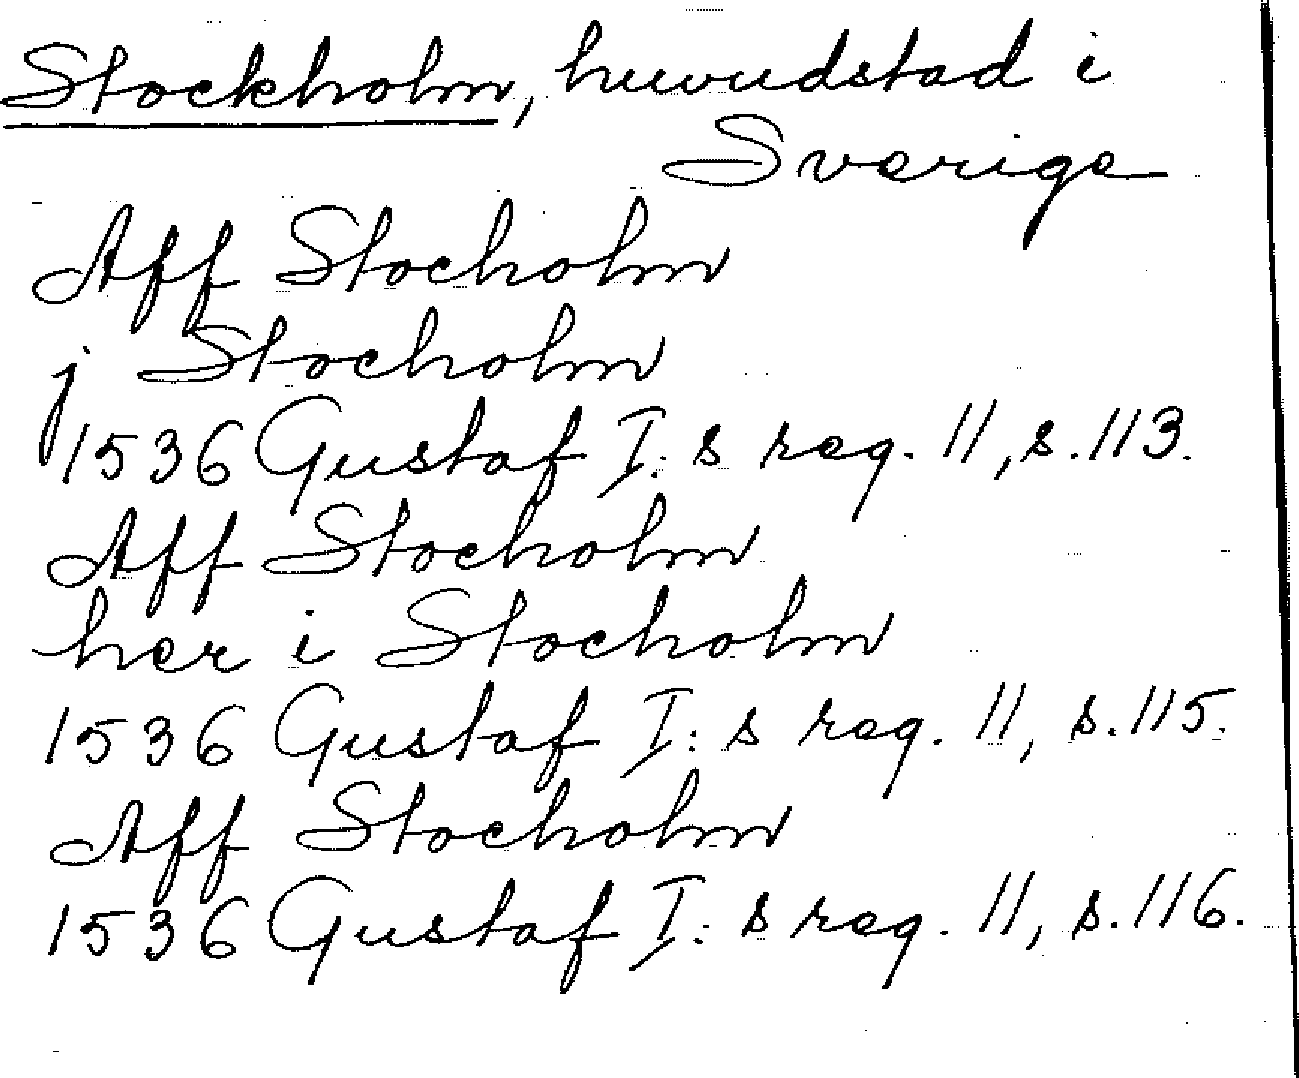 Stockholm, huvudstad i
Sverige
Aff Stocholm
j Stocholm
1536 Gustaf I:s reg. 11, s. 113.
Aff Stocholm
her i Stocholm
1536 Gustaf I:s reg. 11, s. 115.
Aff Stocholm
1536 Gustaf I:s reg. 11, s. 116.